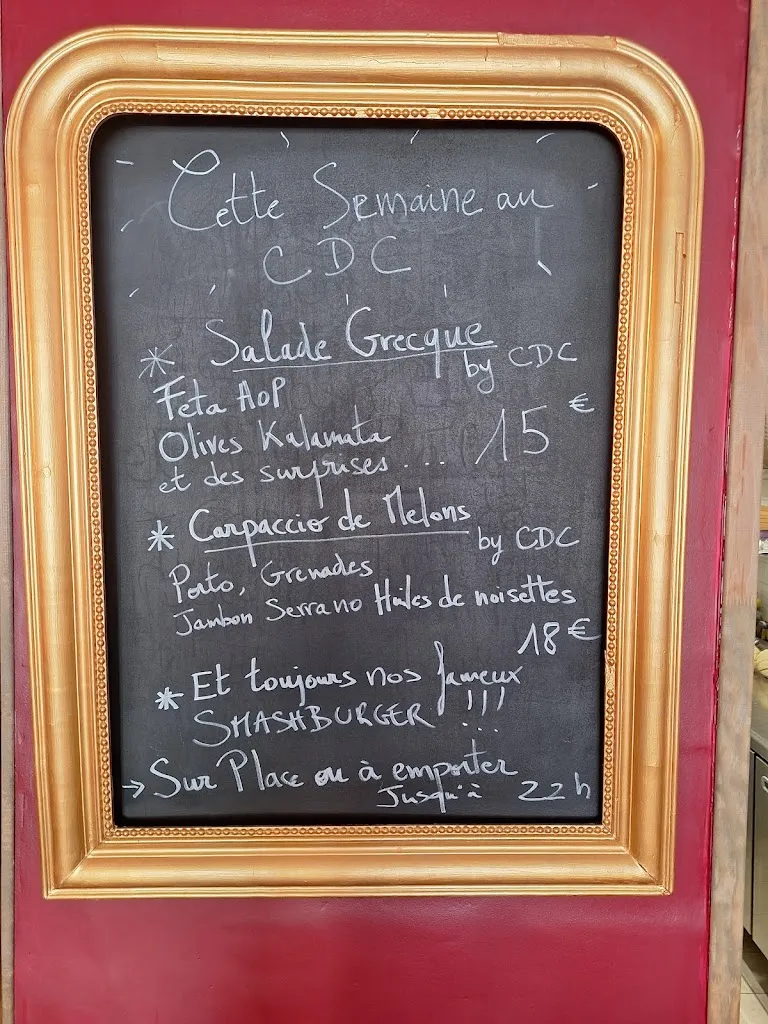 Cette Semaine au
CDC
* Salade Grecque
by CDC
Feta AOP
Olives Kalamata
et des surprises ... 15 €
* Carpaccio de Melons
by CDC
Porto, Grenades
Jambon Serrano Huiles de noisettes
18 €
* Et toujours nos fameux
SMASHBURGER !!!
→ Sur Place ou à emporter
Jusqu'à 22h